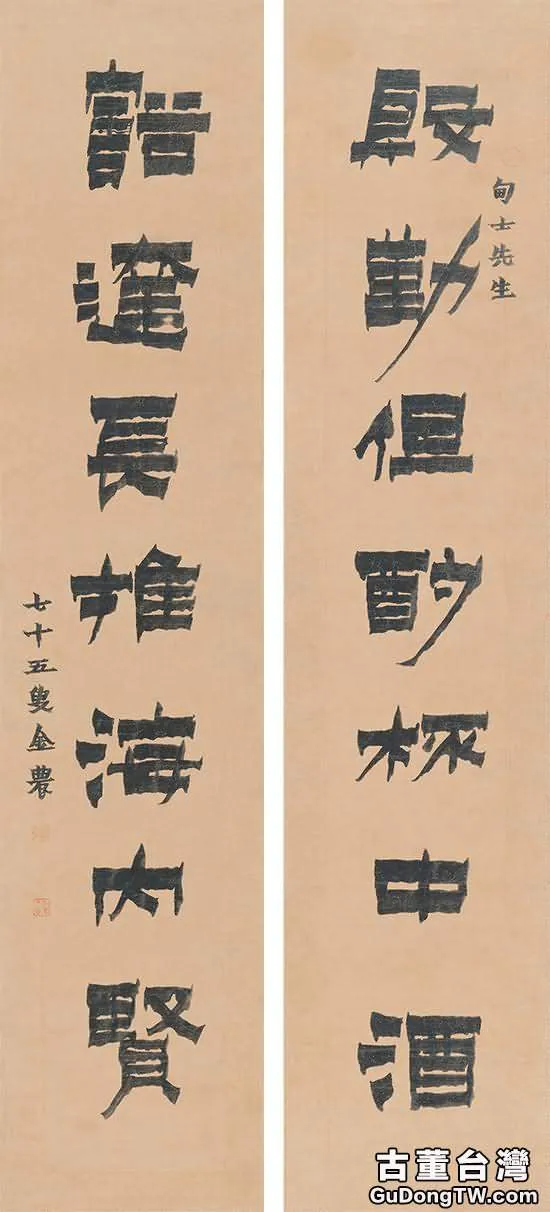 甸士先生
殷勤但酌杯中酒
豁達長推海內賢
七十五叟金農
古董台灣
GuDongTW.com